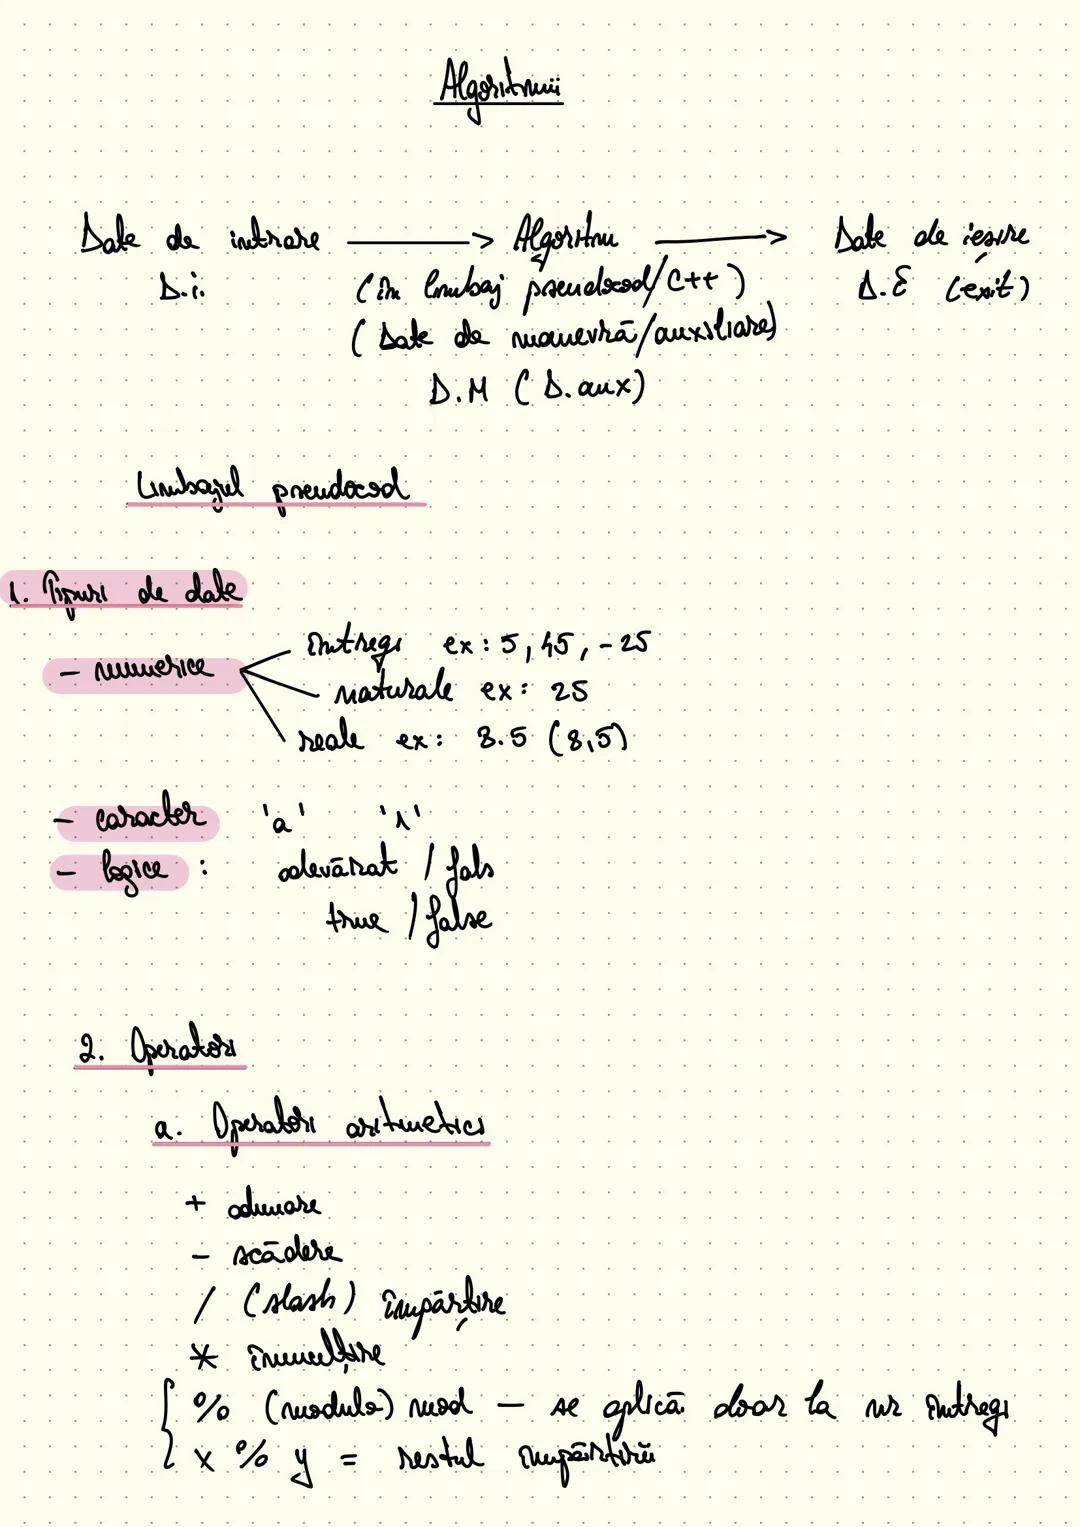 Algoritmii
Date de intrare → Algoritm → Date de ieșire
D.i. (în limbaj pseudocod/C++) D.E (exit)
(Date de manevră/auxiliare)
D.M (D.aux)
Limbajul pseudocod
1. Tipuri de date
- numerice
întregi ex: 5, 45, -25
naturale ex: 25
reale ex: 8.5 (8,5)
- caracter 'a' '1'
- logice : adevărat / fals
true / false
2. Operatori
a. Operatori aritmetici
+ adunare
- scădere
/ (slash) împărțire
* înmulțire
% (modulo) mod - se aplică doar la nr întregi
x % y = restul împărțirii